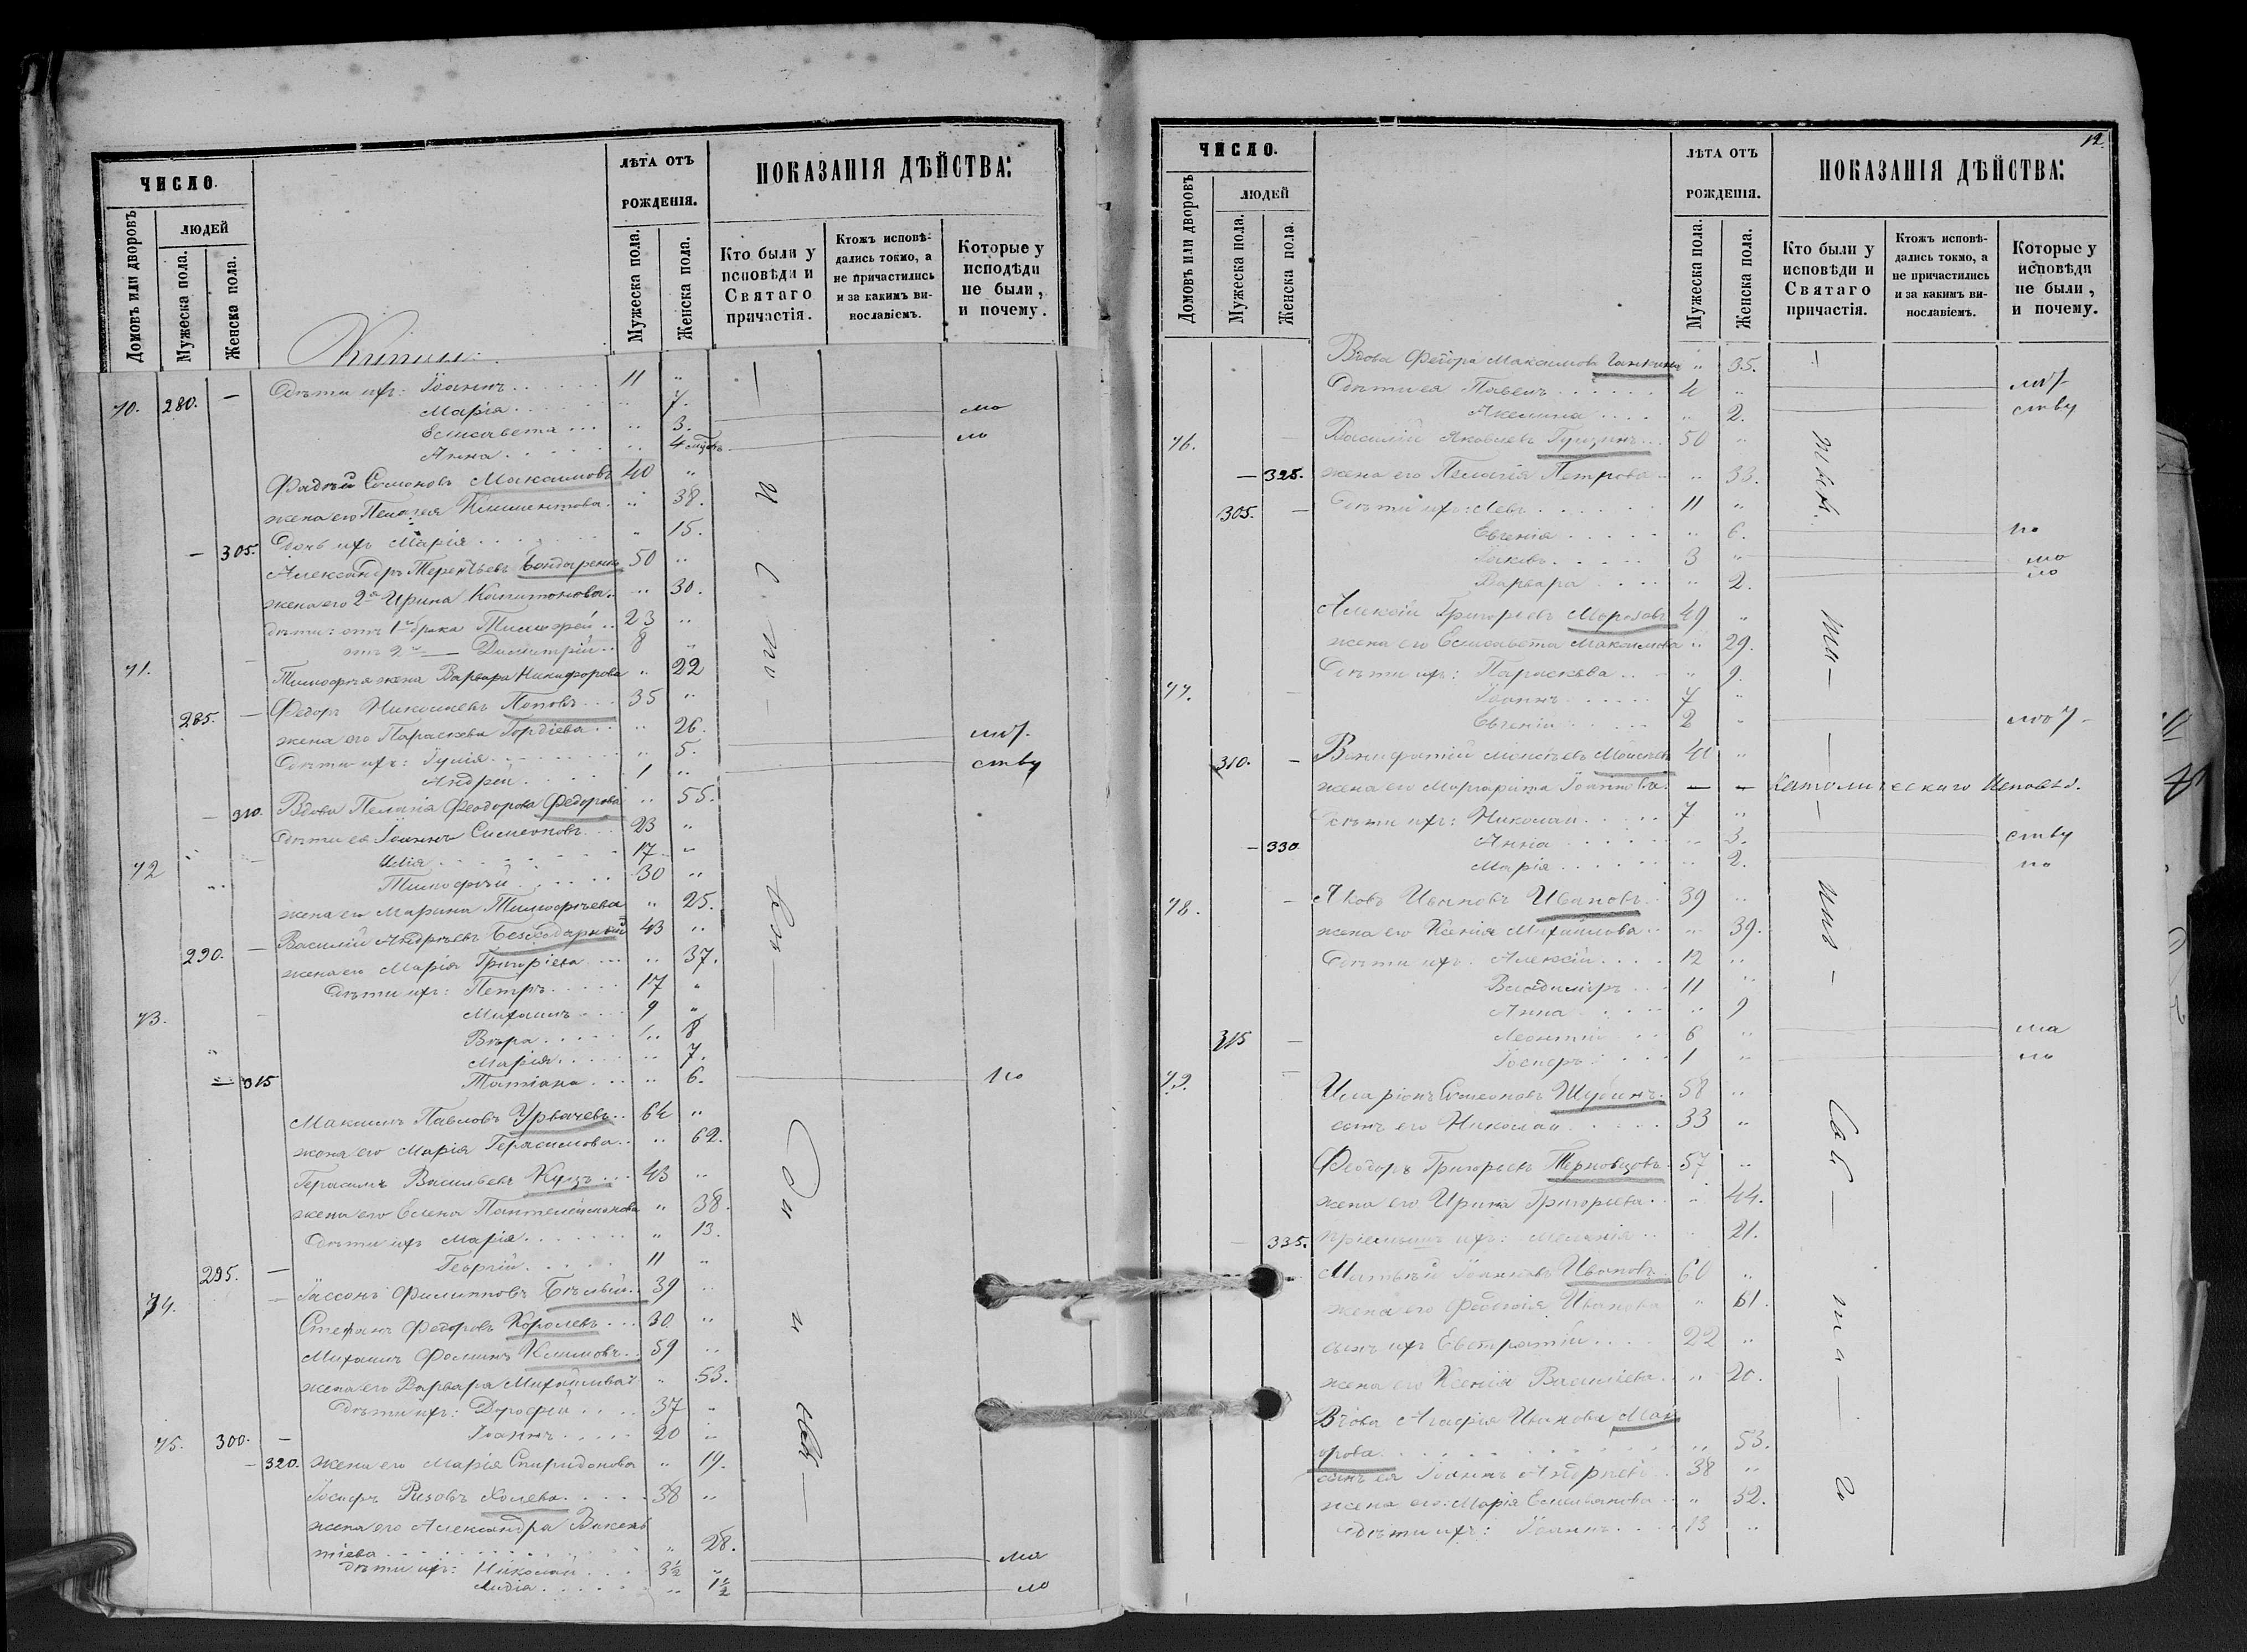 ЧИСЛО.
ЛѢТА ОТЪ РОЖДЕНІЯ.
ПОКАЗАНІЯ ДѢЙСТВА:
Домовъ или дворовъ
ЛЮДЕЙ
Мужеска пола.
Женска пола.
Мужеска пола.
Женска пола.
Кто были у исповѣди и Святаго причастія.
Ктожъ исповѣдались токмо, а не причастились и за какимъ винославіемъ.
Которые у исподѣди не были, и почему.
70. 280. — Дѣти ихъ: Іоаннъ 11 "
Марія " 7.
Елисавета " 3. мо
Анна " 4 ло
Фадѣй Симоновъ Максимовъ 40 "
жена его Пелагея Климентова " 38.
— 305. Дочь ихъ Марія " 15.
Александръ Терентьевъ Бондаренко 50 "
жена его 2я Ирина Капитонова " 30.
дѣти: отъ 1го брака Тимофей 23 "
отъ 2го — Димитрій 8 "
71. Тимофея жена Варвара Никифорова " 22
285. — Федоръ Николаевъ Поповъ 35 "
жена его Параскева Гордіева " 26.
Дѣти ихъ: Іулія " 5. мол
Андрей 1 " ству
— 310. Вдова Пелагія Феодорова Федорова " 55.
Дѣти ея Іоаннъ Симеоновъ 23 "
72 Илія 17 "
Тимофей 30 "
жена его Марина Тимофѣева " 25.
290. — Василій Андрѣевъ Безсодарный 43 "
жена его Марія Григоріева " 37.
Дѣти ихъ: Петръ 17 "
73. Михаилъ 9 "
Вѣра " 8
Марія " 7.
— 315 Татіана " 6. по
Максимъ Павловъ Урвачевъ 64 "
жена его Марія Герасимова " 62.
Герасимъ Васильевъ Куцъ 43 "
жена его Елена Пантелеймонова " 38.
Дѣти ихъ Марія " 13.
295. — Георгій 11 "
74. Іассонъ Филипповъ Бѣлый 39 "
Стефанъ Федоровъ Королевъ 30. "
Михаилъ Фоминъ Климовъ 59 "
жена его Варвара Михайлова " 53.
Дѣти ихъ: Дорофей 37 "
75. 300. — Іоаннъ 20 "
— 320. жена его Марія Спиридонова " 19.
Іосифъ Ризовъ Холева 38 "
жена его Александра Викен
тіева " 28.
дѣти ихъ: Николай 3½ " ма
Лидія " 1½ ло
12.
ЧИСЛО.
ЛѢТА ОТЪ РОЖДЕНІЯ.
ПОКАЗАНІЯ ДѢЙСТВА:
Домовъ или дворовъ
ЛЮДЕЙ
Мужеска пола.
Женска пола.
Мужеска пола.
Женска пола.
Кто были у исповѣди и Святаго причастія.
Ктожъ исповѣдались токмо, а не причастились и за какимъ винославіемъ.
Которые у исповѣди не были, и почему.
Вдова Феодора Максимов " 35.
Дѣти ея Павелъ 4 " мол
Акелина " 2. ству
76. Василій Яковлевъ 50 "
— 325. жена его Пелагія Петрова " 33.
305. — Дѣти ихъ: Левъ 11 "
Евгенія " 6. по
Іаковъ 3 " мо
Варвара " 2. ло
Алексій Григорьевъ Морозовъ 49 "
жена его Елисавета Максимова " 29.
Дѣти ихъ: Параскева " 9.
77. Іоаннъ 7 "
Евгеній 2 " мол
310. — Вонифатій Моисѣевъ Моисѣевъ 40 "
жена его Маргарита Іоаннова — — Католическаго Исповѣд.
Дѣти ихъ: Николай 7 "
— 330 Анна " 3. ству
Марія " 2. по
78. — Яковъ Ивановъ Ивановъ 39 "
жена его Ксенія Михайлова " 39.
Дѣти ихъ: Алексій 12 "
Владиміръ 11 "
Анна " 9
315 — Леонтій 6 " ма
Іосифъ 1 " ло
79. Иларіонъ Симеоновъ Шубинъ 58 "
сынъ его Николай 33 "
Феодоръ Григорьевъ Терновцовъ 57 "
жена его Ирина Григорьева " 44.
— 335. пріемышъ ихъ: Меланія 21.
Матвѣй Іоанновъ Ивановъ 60 "
жена его Феодосія Иванова " 61.
сынъ ихъ Евстратій 22 "
жена его Ксенія Васильева " 20.
Вдова Агафія Иванова Май
орова " 53.
сынъ ея Іоаннъ Андреевъ 38 "
жена его: Марія Емельянова " 32.
Дѣти ихъ: Іоаннъ 13 "